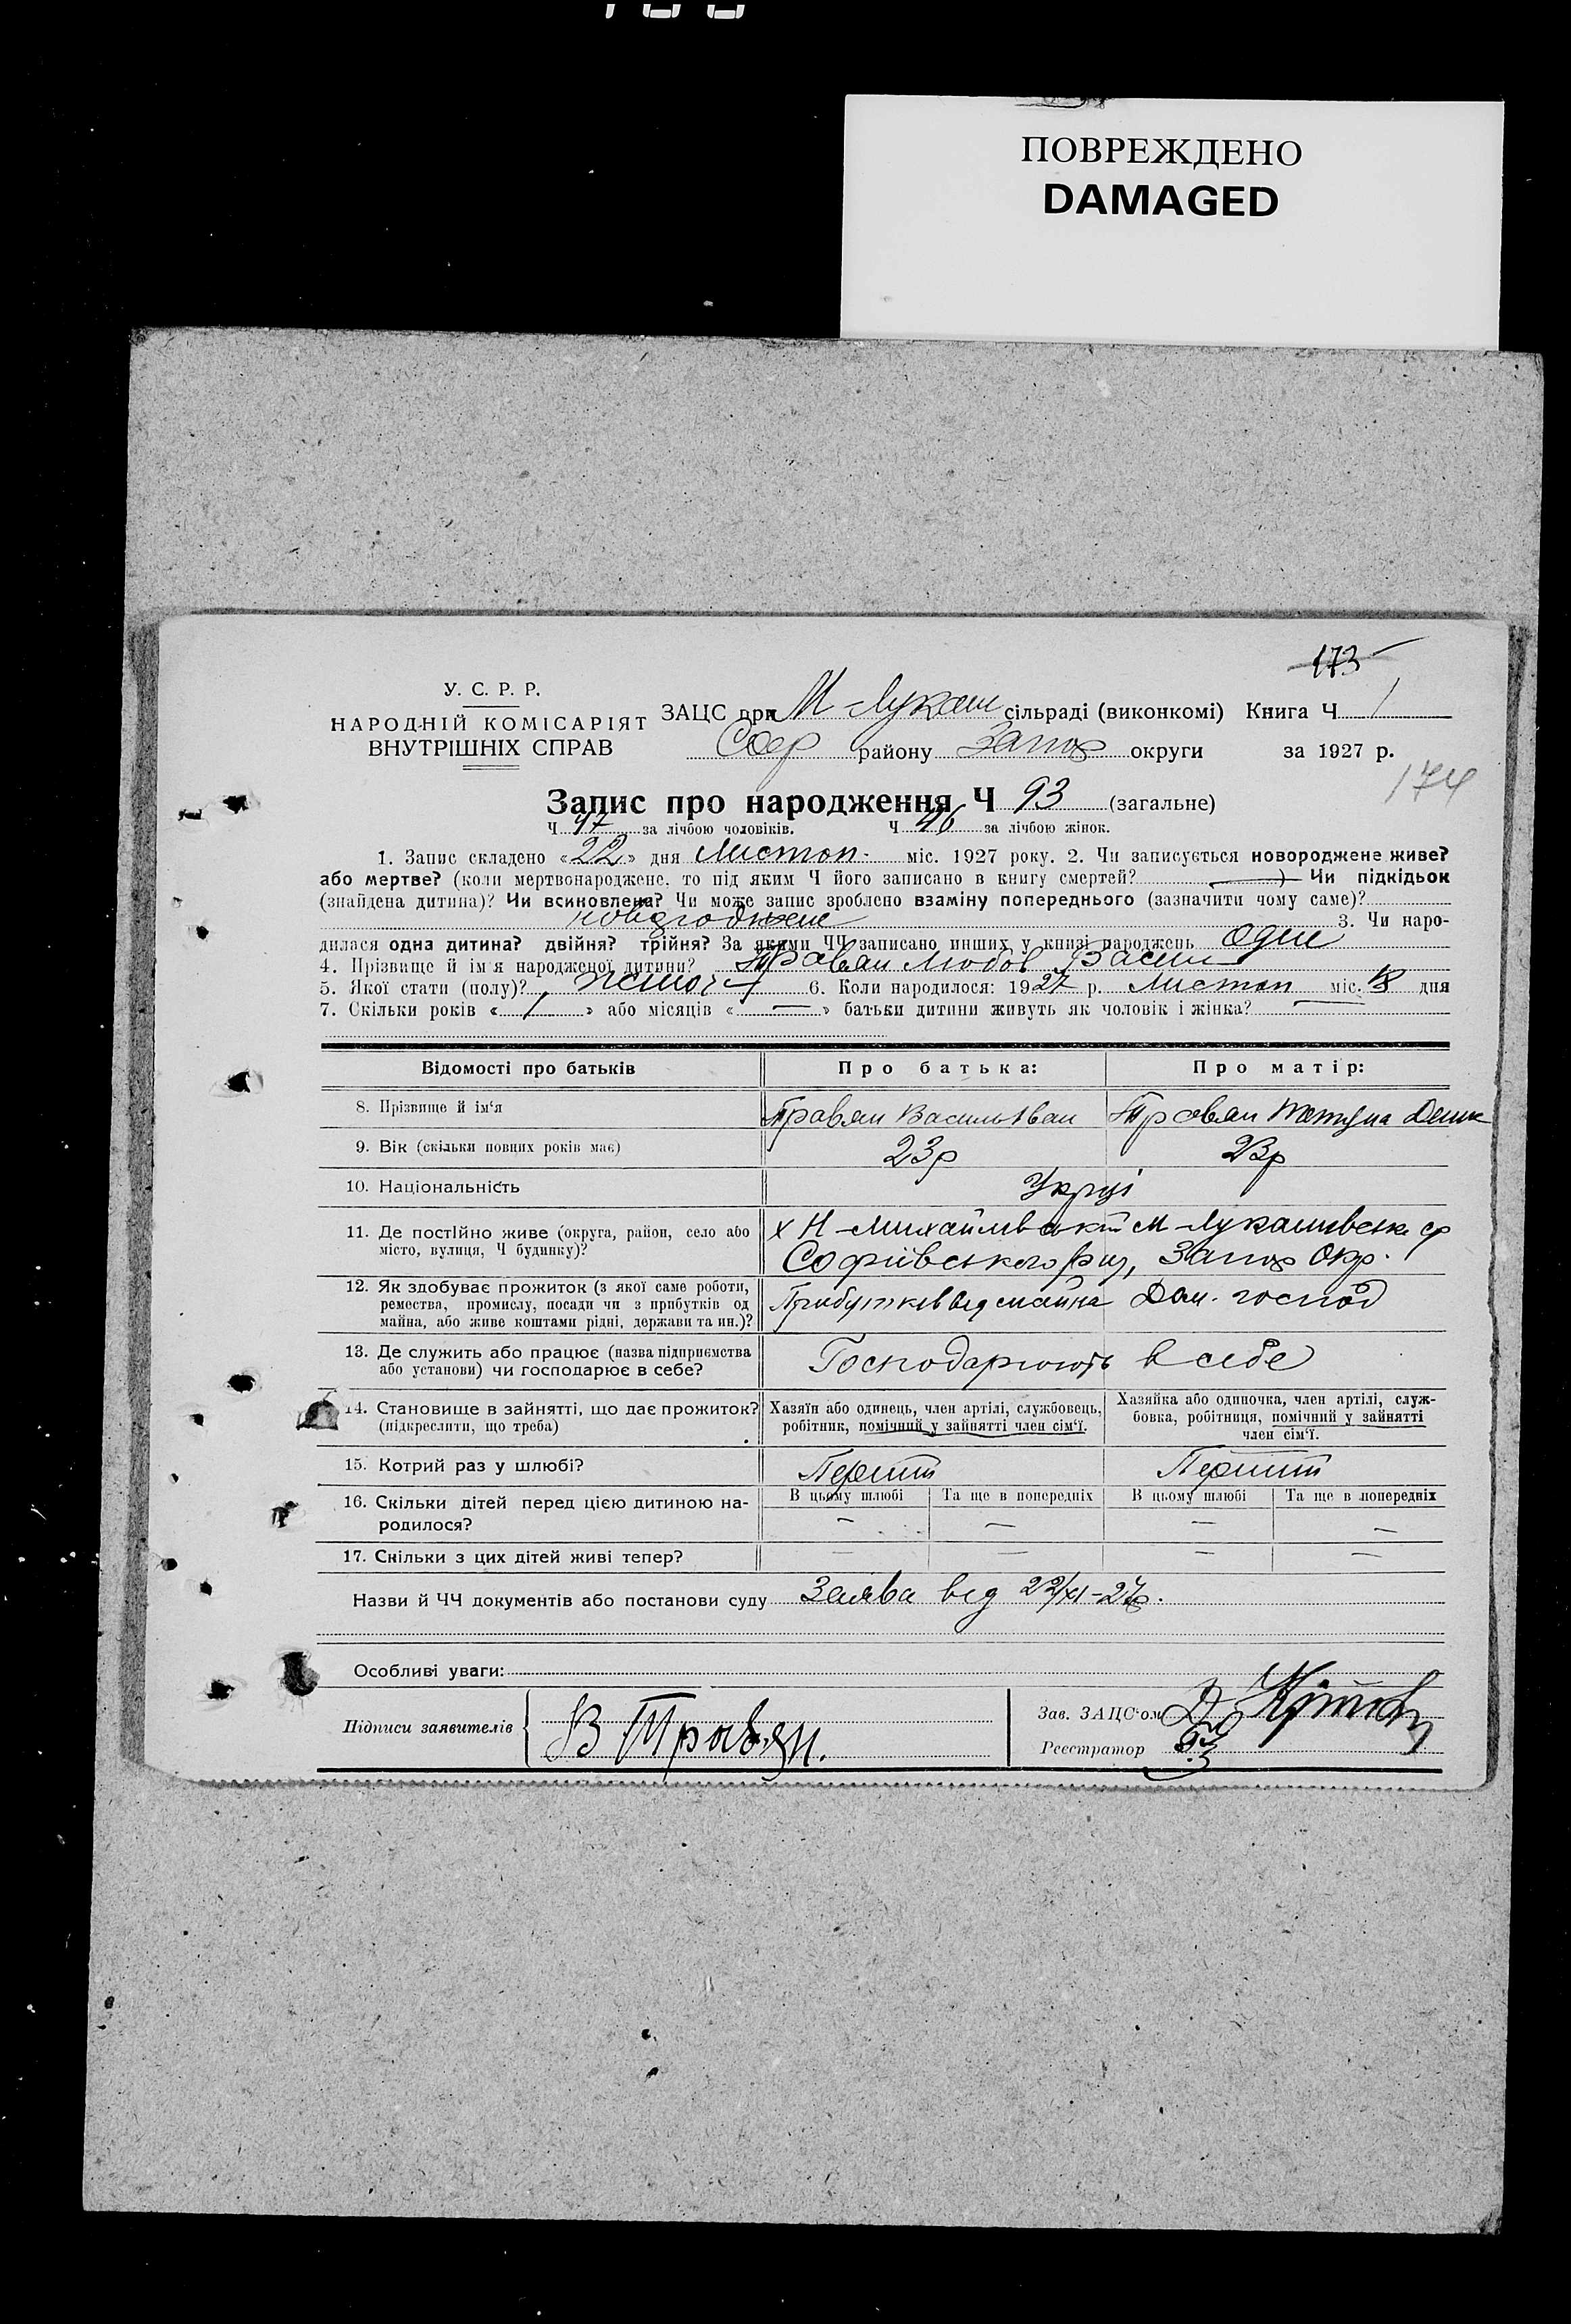 ПОВРЕЖДЕНО
DAMAGED
173
У. С. Р. Р.
НАРОДНІЙ КОМІСАРІЯТ
ВНУТРІШНІХ СПРАВ
ЗАЦС при М Лукаш сільраді (виконкомі) Книга Ч 1
Соф району Запор округи за 1927 р.
174
Запис про народження Ч 93 (загальне)
Ч 47 за лічбою чоловіків. Ч 46 за лічбою жінок.
1. Запис складено «22» дня Листоп. міс. 1927 року. 2. Чи записується новороджене живе?
або мертве? (коли мертвонароджене, то під яким Ч його записано в книгу смертей? —) Чи підкідьок
(знайдена дитина)? Чи всиновлена? Чи може запис зроблено взаміну попереднього (зазначити чому саме)?
новороджене 3. Чи наро-
дилася одна дитина? двійня? трійня? За якими ЧЧ записано инших у книзі народжень одне
4. Прізвище й ім'я народженої дитини? Травян Любов Васил
5. Якої стати (полу)? жіноч 6. Коли народилося: 1927 р. Листоп міс. 18 дня
7. Скільки років « 1 » або місяців « — » батьки дитини живуть як чоловік і жінка? —
Відомості про батьків
Про батька:
Про матір:
8. Прізвище й ім'я
Травян Василь Іван
Травян Тетяна Деми
9. Вік (скільки повних років має)
23р
23р
10. Національність
Укрці
11. Де постійно живе (округа, район, село або
місто, вулиця, Ч будинку)?
х Н-Михайлівський М-Лукашівська ср
Софіївського Рай, Запор Окр.
12. Як здобуває прожиток (з якої саме роботи,
ремества, промислу, посади чи з прибутків од
майна, або живе коштами рідні, держави та ин.)?
Прибутків від майна
Дом. господ
13. Де служить або працює (назва підприємства
або установи) чи господарює в себе?
Господарюють в себе
14. Становище в зайнятті, що дає прожиток?
(підкреслити, що треба)
Хазяїн або одинець, член артілі, службовець,
робітник, помічний у зайнятті член сім'ї.
Хазяйка або одиночка, член артілі, служ-
бовка, робітниця, помічний у зайнятті
член сім'ї.
15. Котрий раз у шлюбі?
Перший
Перший
16. Скільки дітей перед цією дитиною на-
родилося?
В цьому шлюбі
Та ще в попередніх
В цьому шлюбі
Та ще в попередніх
— — — —
17. Скільки з цих дітей живі тепер?
— — — —
Назви й ЧЧ документів або постанови суду Заява від 22/XI-27р.
Особливі уваги:
Підписи заявителів
В Травян.
Зав. ЗАЦС'ом
Реєстратор